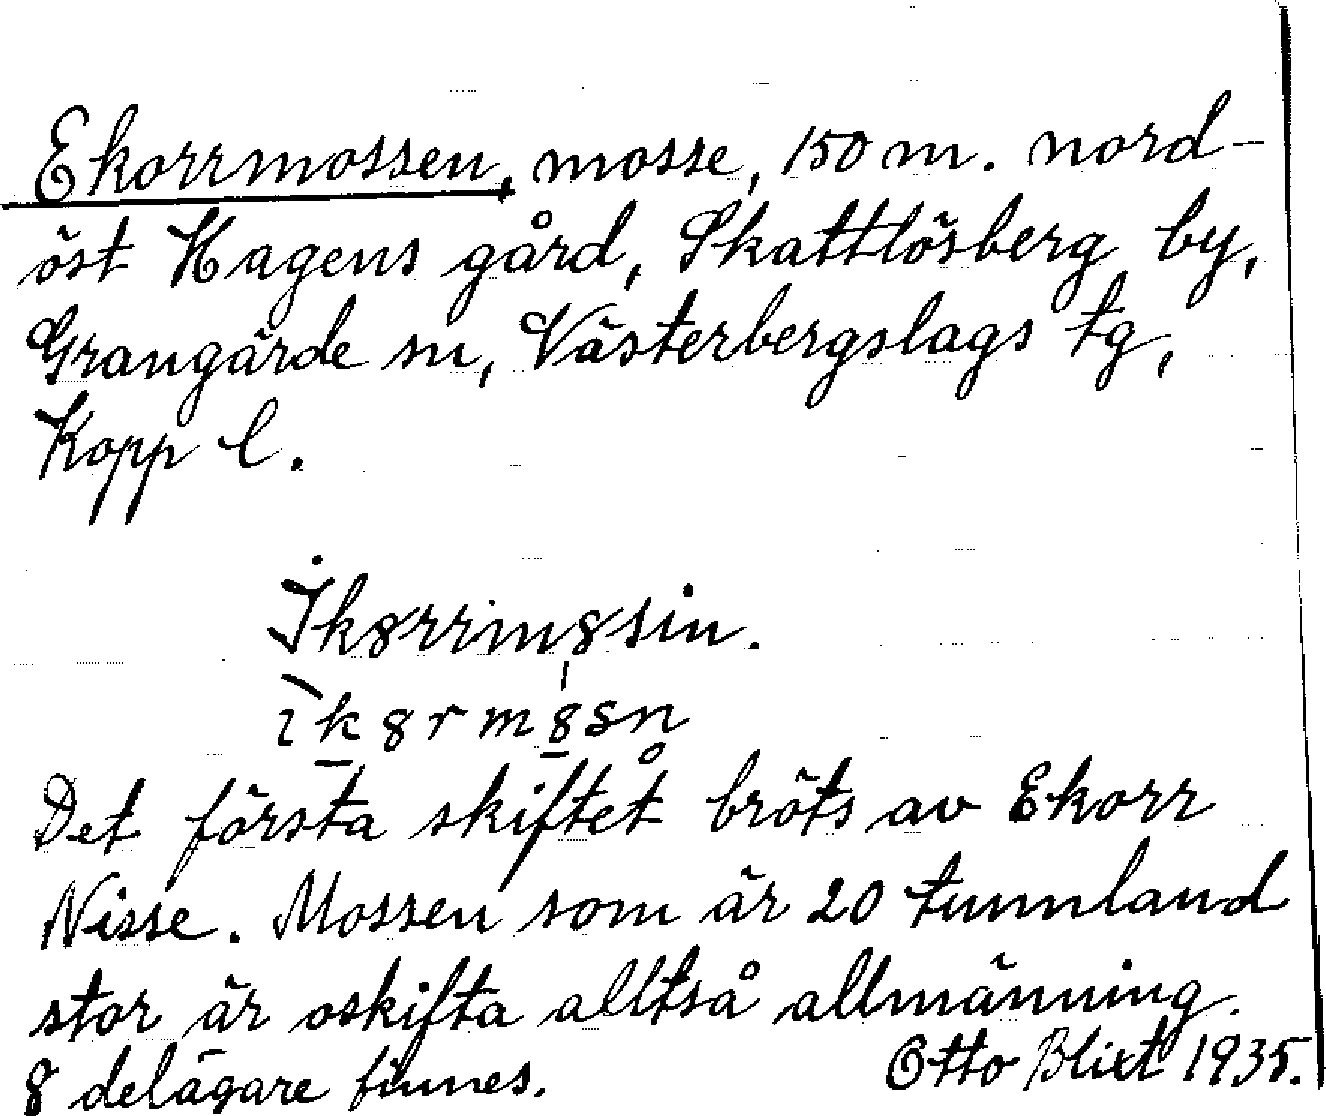 Ekorrmossen, mosse, 150 m. nord-
öst Hagens gård, Skattlösberg by,
Grangärde sn, Västerbergslags tg,
Kopp l.
Ikȣrrimȣsin.
ìkȣrmȣsn
Det första skiftet bröts av Ekorr
Nisse. Mossen som är 20 tunnland
stor är oskifta alltså allmänning.
8 delägare finnes. Otto Blixt 1935.